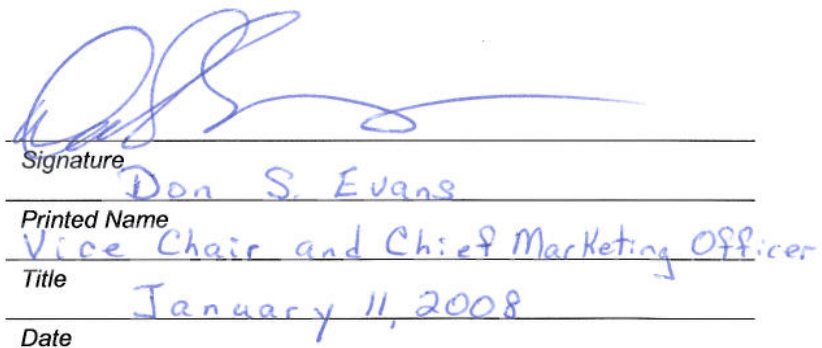 Signature
Don S. Evans
Printed Name
Vice Chair and Chief Marketing Officer
Title
January 11, 2008
Date